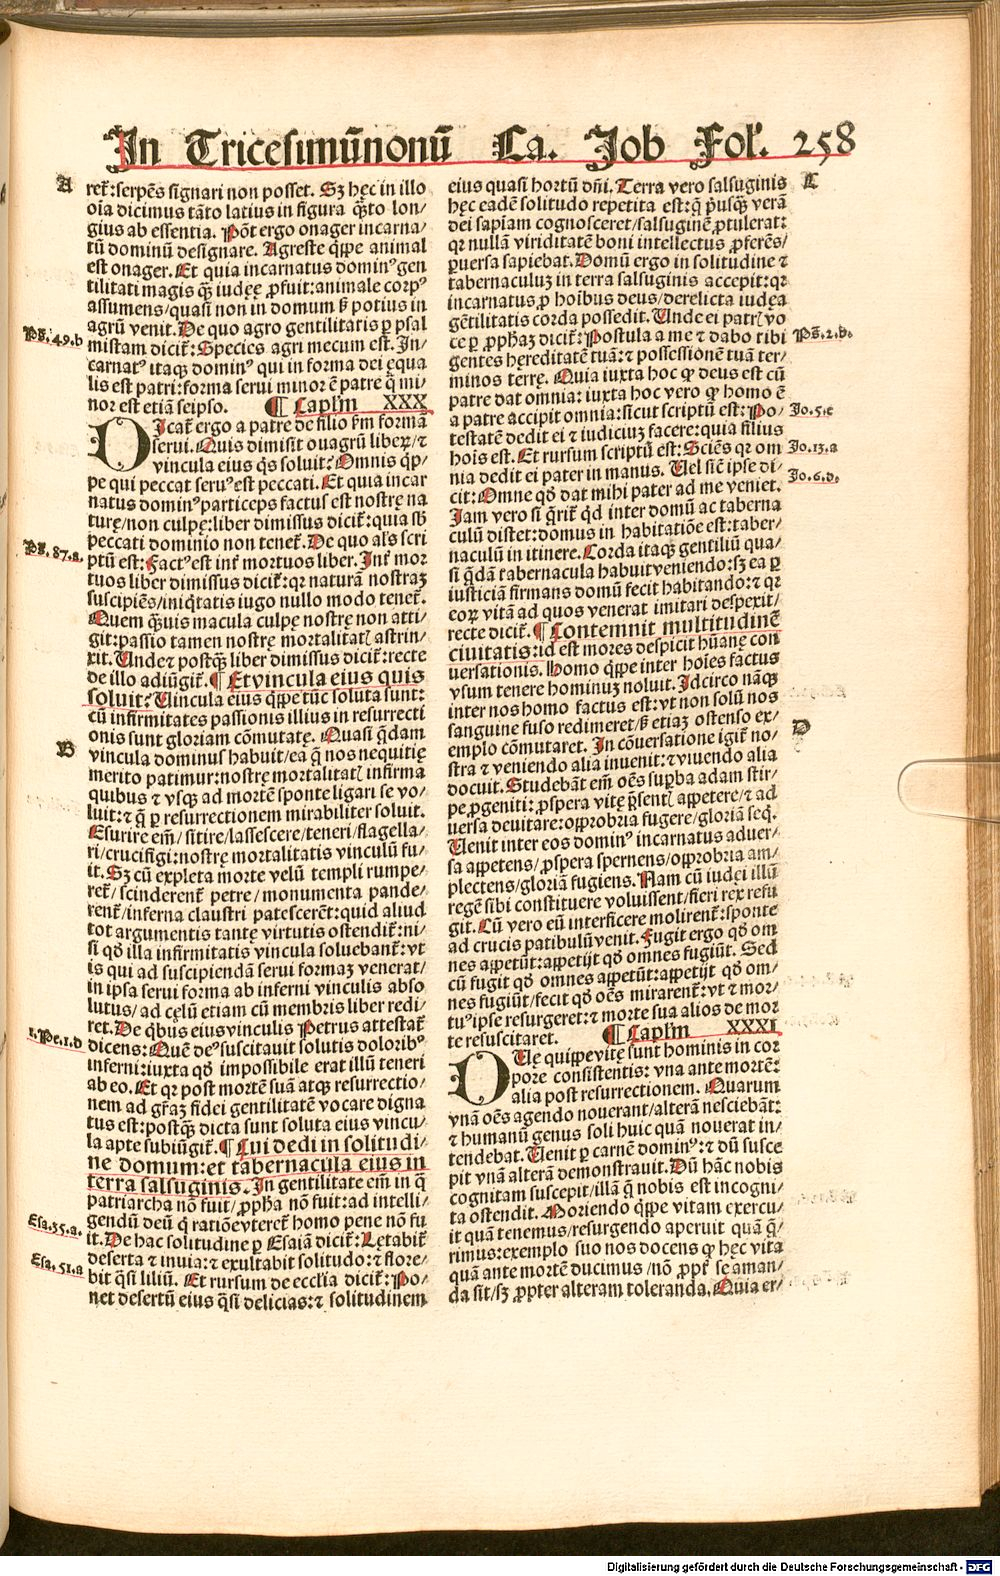 In Tricesimūnonū Ca. Job Fol. 258
A
ret̄:serpēs signari non posset. Sꝫ hęc in illo
oīa dicimus tāto latius in figura q̄ꝫto lon⸗
gius ab essentia. Pōt ergo onager incarna⸗
tū dominū designare. Agreste q̄ꝓpe animal
est onager. Et quia incarnatus dominꝰ gen
tilitati magis q̄ꝫ iudęę ꝓfuit:animale corpꝰ
assumens/quasi non in domum ß potius in
agrū venit. De quo agro gentilitatis ꝑ psal
Ps̄. 49.b
mistam dicit̄: Species agri mecum est. In⸗
carnatꝰ itaqꝫ dominꝰ qui in forma dei ęqua
lis est patri:forma serui minor ē patre q̄ mi⸗
nor est etiā seipso. ¶ Caplm XXX
DIcat̄ ergo a patre de filio ßm formā
serui. Quis dimisit onagrū liberꝫ/⁊
vincula eius q̄s soluit? Omnis q̄p⸗
pe qui peccat seruꝰ est peccati. Et quia incar
natus dominꝰ particeps factus est nostrę na
turę/non culpę:liber dimissus dicit̄:quia sb̄
peccati dominio non tenet̄. De quo al̓s scri
Ps̄. 87.a.
ptū est:Factꝰ est int̄ mortuos liber. Int̄ mor
tuos liber dimissus dicit̄:qꝛ naturā nostraꝫ
suscipiēs/iniq̄tatis iugo nullo modo tenet̄.
Quem q̄ꝫuis macula culpę nostrę non atti⸗
git:passio tamen nostrę mortalitatꝭ astrin⸗
xit. Unde ⁊ postq̄ꝫ liber dimissus dicit̄:recte
de illo adiūgit̄. ¶ Et vincula eius quis
soluit? Uincula eius q̄ꝓpe tūc soluta sunt:
cū infirmitates passionis illius in resurrecti
onis sunt gloriam cōmutatę. Quasi q̄dam
B
vincula dominus habuit/ea q̄ nos nequitię
merito patimur:nostrę mortalitatꝭ infirma
quibus ⁊ vsqꝫ ad mortē sponte ligari se vo⸗
luit:⁊ q̄ ꝑ resurrectionem mirabiliter soluit.
Esurire em̄/sitire/lassescere/teneri/flagella⸗
ri/crucifigi:nostrę mortalitatis vinculū fu⸗
it. Sꝫ cū expleta morte velū templi rumpe⸗
ret̄/scinderent̄ petre/monumenta pande⸗
rent̄/inferna claustri patescerēt:quid aliud
tot argumentis tantę virtutis ostendit̄:ni⸗
si qð illa infirmitatis vincula soluebant̄:vt
is qui ad suscipiendā serui formaꝫ venerat/
in ipsa serui forma ab inferni vinculis abso
lutus/ad cęlū etiam cū membris liber redi⸗
ret. De q̄bus eius vinculis Petrus attestat̄
1.Pe.1.d
dicens:Quē deꝰ suscitauit solutis doloribꝰ
inferni:iuxta qð impossibile erat illū teneri
ab eo. Et qꝛ post mortē suā atqꝫ resurrectio⸗
nem ad gr̄aꝫ fidei gentilitatē vocare digna
tus est:postq̄ꝫ dicta sunt soluta eius vincu⸗
la apte subiūgit̄. ¶ Cui dedi in solitudi⸗
ne domum:et tabernacula eius in
terra salsuginis. In gentilitate em̄ in q̄
patriarcha nō fuit/ꝓpha nō fuit:ad intelli⸗
gendū deū q̄ ratiōe vteret̄ homo pene nō fu
Esa.35.a.
it. De hac solitudine ꝑ Esaiā dicit̄: Lętabit̄
deserta ⁊ inuia:⁊ exultabit solitudo:⁊ flore⸗
Esa. 51.a
bit q̄si liliū. Et rursum de eccl̓ia dicit̄: Po⸗
net desertū eius q̄si delicias:⁊ solitudinem
eius quasi hortū dn̄i. Terra vero salsuginis
C
hęc eadē solitudo repetita est:q̄ pꝰusq̄ꝫ verā
dei sapiam cognosceret/salsuginē ꝓtulerat:
qꝛ nullā viriditatē boni intellectus ꝓferēs/
ꝑuersa sapiebat. Domū ergo in solitudine ⁊
tabernaculuꝫ in terra salsuginis accepit:qꝛ
incarnatus ꝑ hoibus deus/derelicta iudęa
gētilitatis corda possedit. Unde ei patrꝭ vo
ce ꝑ ꝓphaꝫ dicit̄: Postula a me ⁊ dabo tibi
Ps̄.2.b.
gentes hęreditatē tuā:⁊ possessionē tuā ter⸗
minos terrę. Quia iuxta hoc ꝙ deus est cū
patre dat omnia: iuxta hoc vero ꝙ homo ē
a patre accipit omnia: sicut scriptū est: Po⸗
Jo.5.e
testatē dedit ei ⁊ iudiciuꝫ facere:quia filius
hois est. Et rursum scriptū est: Sciēs qꝛ om
Jo.13.a
nia dedit ei pater in manus. Uel sic̄ ipse di⸗
cit: Omne qð dat mihi pater ad me veniet.
Jo.6.d.
Jam vero si q̄rit̄ q̄d inter domū ac taberna
culū distet:domus in habitatiōe est:taber⸗
naculū in itinere. Corda itaqꝫ gentiliū qua⸗
si q̄dā tabernacula habuit veniendo:sꝫ ea ꝑ
iusticiā firmans domū fecit habitando:⁊ qꝛ
eoꝝ vitā ad quos venerat imitari despexit/
recte dicit̄. ¶ Contemnit multitudinē
ciuitatis:id est mores despicit hūanę con
uersationis. Homo q̄ꝓpe inter hoīes factus
vsum tenere hominuꝫ noluit. Idcirco nāqꝫ
inter nos homo factus est:vt non solū nos
sanguine fuso redimeret/ß etiaꝫ ostenso ex⸗
emplo cōmutaret. In cōuersatione igit̄ no⸗
D
stra ⁊ veniendo alia inuenit:⁊ viuendo alia
docuit. Studebāt em̄ oēs suꝑba adam stir⸗
pe ꝓgeniti: ꝓspera vitę p̄sentꝭ aꝑpetere/⁊ ad
uersa deuitare:opꝓbria fugere/gloriā seq̄.
Uenit inter eos dominꝰ incarnatus aduer⸗
sa aꝑpetens/ꝓspera spernens/opꝓbria am⸗
plectens/gloriā fugiens. Nam cū iudęi illū
regē sibi constituere voluissent/fieri rex refu
git. Cū vero eū interficere molirent̄:sponte
ad crucis patibulū venit. Fugit ergo qð om
nes aꝑpetūt:aꝑpetijt qð omnes fugiūt. Sed
cū fugit qð omnes aꝑpetūt:aꝑpetijt qð om⸗
nes fugiūt/fecit qð oēs mirarent̄:vt ⁊ mor⸗
tuꝰ ipse resurgeret:⁊ morte sua alios de mor
te resuscitaret. ¶ Caplm XXXI
DUę quippe vitę sunt hominis in cor
pore consistentis: vna ante mortē:
alia post resurrectionem. Quarum
vnā oēs agendo nouerant/alterā nesciebāt:
⁊ humanū genus soli huic quā nouerat in⸗
tendebat. Uenit ꝑ carnē dominꝰ:⁊ dū susce
pit vnā alterā demonstrauit. Dū hāc nobis
cognitam suscepit/illā q̄ nobis est incogni⸗
ta ostendit. Moriendo q̄ꝓpe vitam exercu⸗
it quā tenemus/resurgendo aperuit quā q̄⸗
rimus:exemplo suo nos docens ꝙ hęc vita
quā ante mortē ducimus/nō ꝓpt̄ se aman⸗
da sit/sꝫ ꝓpter alteram toleranda. Quia er⸗
Digitalisierung gefördert durch die Deutsche Forschungsgemeinschaft - DFG